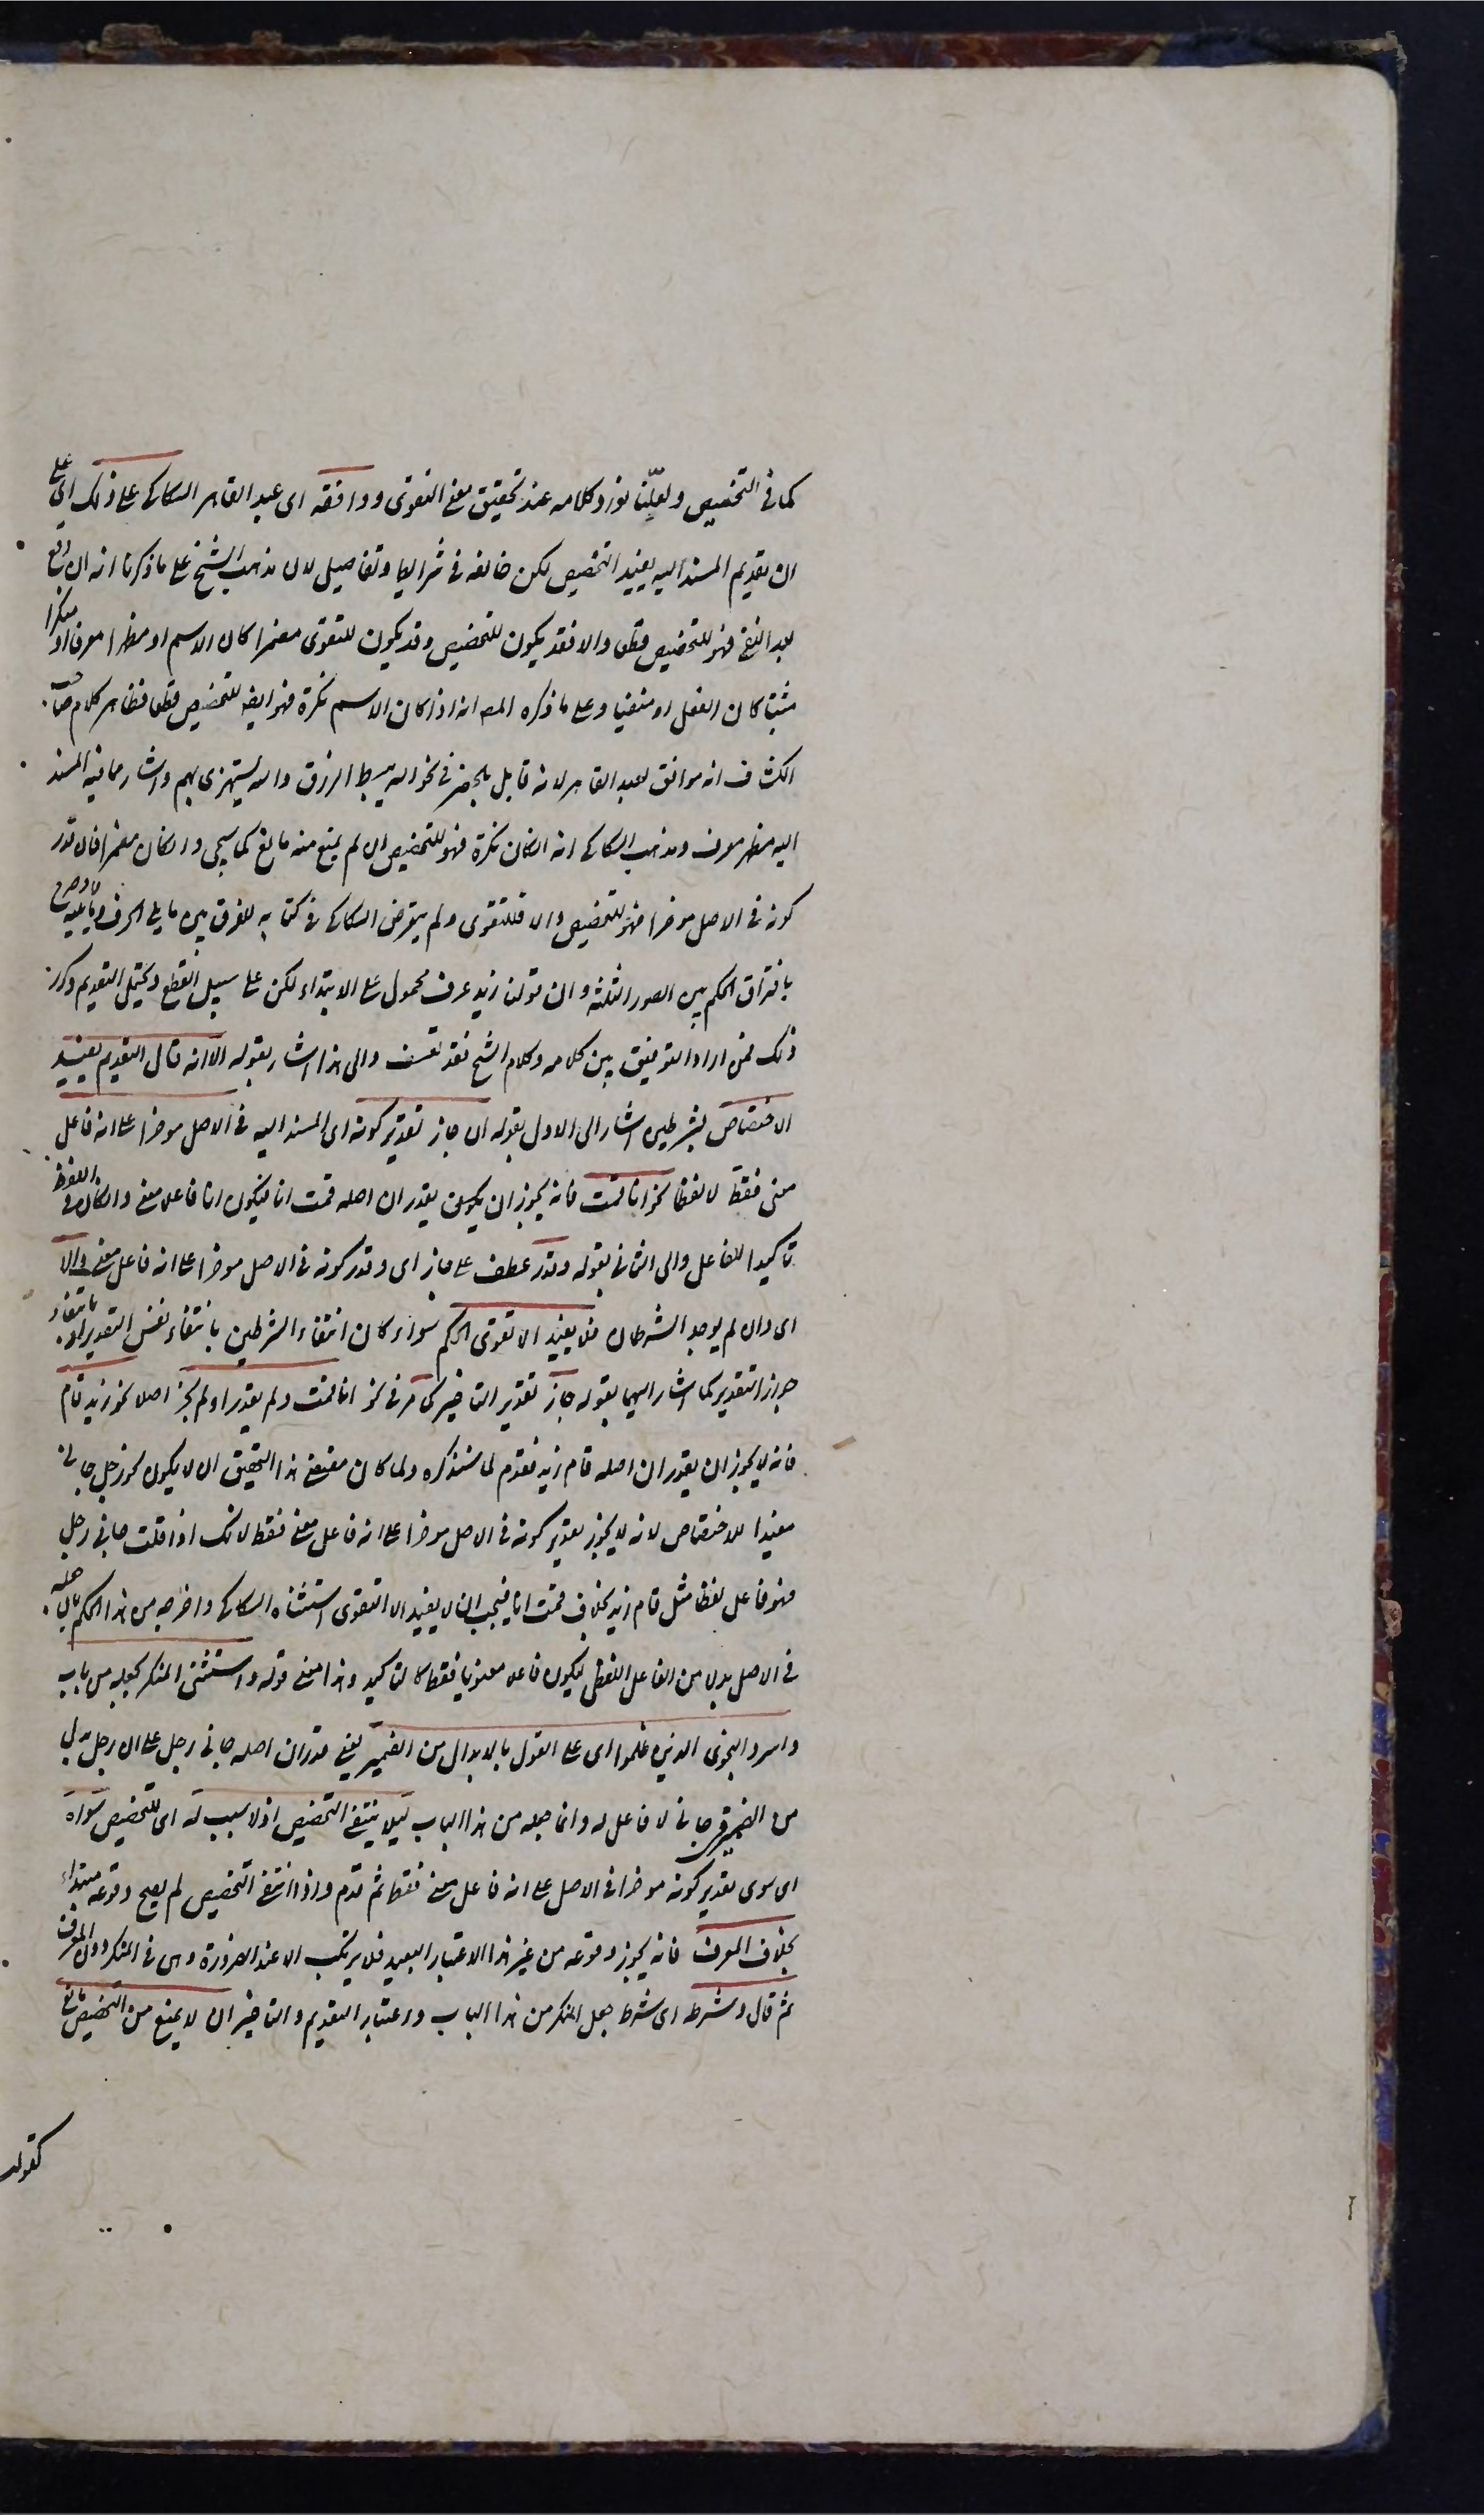 كما فى التخصيص ولعلّنا نورد كلامه عند تحقيق معنى التقوى ووافقه اى عبد القاهر السكاكى على ذلك اى على
ان تقديم المسند اليه يفيد التخصيص لكن خالفه فى شرايط وتفاصيل لان مذهب الشيخ على ما ذكرنا انه ان وقع
بعد النفى فهو للتخصيص قطعا والا فقد يكون للتخصيص وقد يكون للتقوى مضمرا كان الاسم او مظهرا معرفا او منكرا
مثبتا كان الفعل او منفيا وعلى ما ذكره المص انه اذا كان الاسم نكرة فهو ايض للتخصيص قطعا فظاهر كلام صاحب
الكشاف انه موافق لعبد القاهر لانه قايل بالحصر فى نحو الله يبسط الرزق والله يستهزى بهم واشار مما فيه المسند
اليه مظهر معرف ومذهب السكاكى انه ان كان نكرة فهو للتخصيص ان لم يمنع منه مانع كما سيجى وان كان مضمرا فان قدر
كونه فى الاصل موخرا فهو للتخصيص والا فللتقوى ولم يتعرض السكاكى فى كتابه للفرق بين ما يلى حرف وما لا يليه وصرح
بافتراق الحكم بين الصور الثلثه وان قولنا زيد عرف محمول على الابتداء لكن على سبيل القطع ويحتمل التقديم وكرر
ذلك فمن اراد التوفيق بين كلامه وكلام الشيخ فقد تعسف والى هذا اشار بقوله الا انه قال التقديم يفيد
الاختصاص بشرطين اشار الى الاول بقوله ان جاز تقدير كونه اى المسند اليه فى الاصل موخرا على انه فاعل
معنى فقط لا لفظا نحو انا قمت فانه يجوز ان يكون يقدر ان اصله قمت انا فيكون انا فاعلا معنى وان كان فى اللفظ
تاكيدا للفاعل والى الثانى بقوله وقدر عطف على جاز اى وقدر كونه فى الاصل موخرا على انه فاعل معنى والا
اى وان لم يوجد الشرطان فلا يفيد الا تقوى الحكم سواء كان انتفاء الشرطين بانتفاء نفس التقدير او بانتفاء
جواز التقدير كما اشار اليهما بقوله جاز تقدير التاخير كما مر فى نحو انا قمت ولم يقدر او لم يجز اصلا نحو زيد قام
فانه لا يجوز ان يقدر ان اصله قام زيد فقدم لما سنذكره ولما كان مقتضى هذا التحقيق ان لا يكون نحو رجل جائنى
مفيدا للاختصاص لانه لا يجوز تقدير كونه فى الاصل موخرا على انه فاعل معنى فقط لانك اذا قلت جائنى رجل
فهو فاعل لفظا مثل قام زيد بخلاف قمت انا فيجب ان لا يفيد الا التقوى استثناه السكاكى واخرجه من هذا الحكم بان جعله
فى الاصل بدلا من الفاعل اللفظى ليكون فاعلا معنويا فقط كالتاكيد وهذا معنى قوله واستثنى المنكر بجعله من باب
واسروا النجوى الذين ظلموا اى على القول بالابدال من الضمير يعنى قدر ان اصله جائنى رجل على ان رجل بدل
من الضمير فى جائنى لا فاعل له وانما جعله من هذا الباب ليلا ينتفى التخصيص اذ لا سبب له اى للتخصيص سواه
اى سوى تقدير كونه موخرا فى الاصل على انه فاعل معنى فقط ثم قدم واذا انتفى التخصيص لم يصح وقوعه مبتداء
بخلاف المعرف فانه يجوز وقوعه من غير هذا الاعتبار البعيد فلا يرتكب الا عند الضرورة وهى فى المنكر دون المعرف
ثم قال وشرطه اى شرط جعل المنكر من هذا الباب واعتبار التقديم والتاخير ان لا يمنع من التخصيص مانع
كقولك